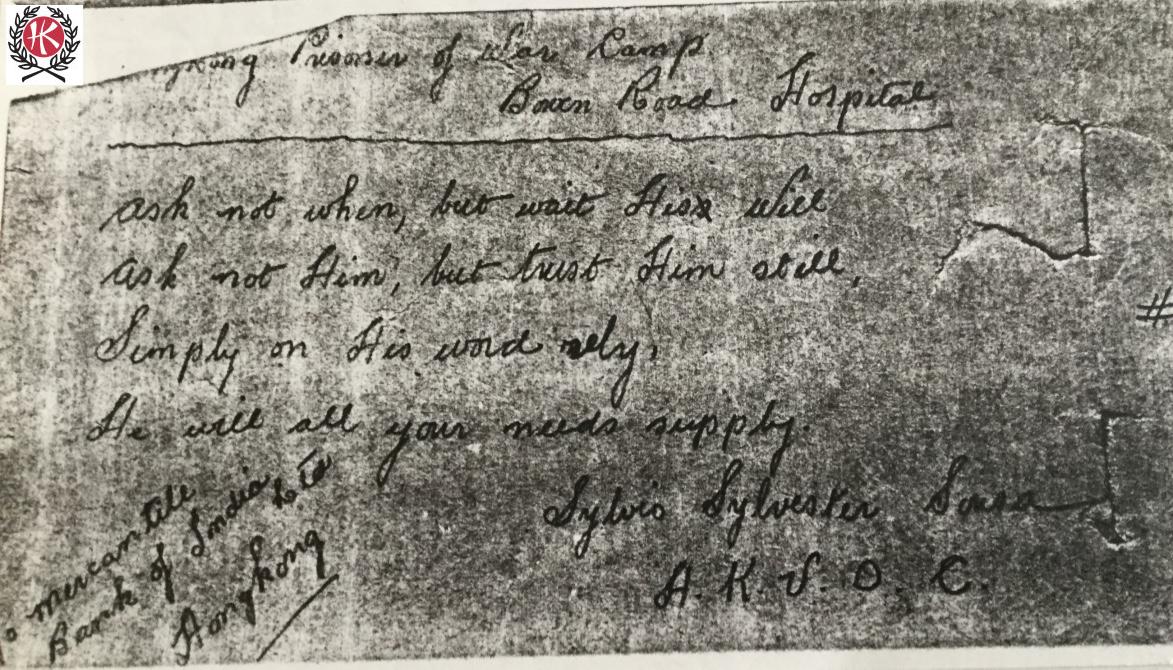 HK
Hongkong Prisoner of War Camp
Bowen Road Hospital
Ask not when, but wait His will
Ask not Him, but trust Him still,
Simply on His word rely,
He will all your needs supply.
Sylvio Sylvester Sousa
H. K. V. D. C.
Mercantile
Bank of India Ltd
Hongkong
#